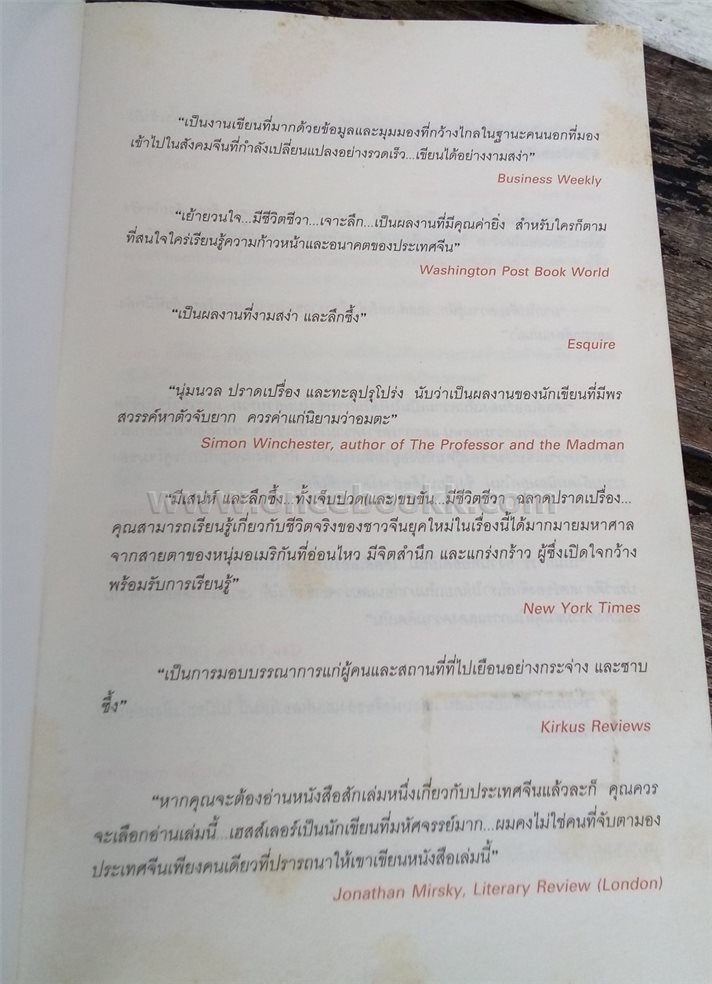 “เป็นงานเขียนที่มากด้วยข้อมูลและมุมมองที่กว้างไกลในฐานะคนนอกที่มอง
เข้าไปในสังคมจีนที่กำลังเปลี่ยนแปลงอย่างรวดเร็ว...เขียนได้อย่างงามสง่า”
Business Weekly
“เย้ายวนใจ...มีชีวิตชีวา...เจาะลึก...เป็นผลงานที่มีคุณค่ายิ่ง สำหรับใครก็ตาม
ที่สนใจใคร่เรียนรู้ความก้าวหน้าและอนาคตของประเทศจีน”
Washington Post Book World
“เป็นผลงานที่งามสง่า และลึกซึ้ง”
Esquire
“นุ่มนวล ปราดเปรื่อง และทะลุปรุโปร่ง นับว่าเป็นผลงานของนักเขียนที่มีพร
สวรรค์หาตัวจับยาก ควรค่าแก่นิยามว่าอมตะ”
Simon Winchester, author of The Professor and the Madman
“มีเสน่ห์ และลึกซึ้ง...ทั้งเจ็บปวด(และ)ขบขัน...มีชีวิตชีวา ฉลาดปราดเปรื่อง...
www.oncebookk.com
คุณสามารถเรียนรู้เกี่ยวกับชีวิตจริงของชาวจีนยุคใหม่ในเรื่องนี้ได้มากมายมหาศาล
จากสายตาของหนุ่มอเมริกันที่อ่อนไหว มีจิตสำนึก และแกร่งกร้าว ผู้ซึ่งเปิดใจกว้าง
พร้อมรับการเรียนรู้”
New York Times
“เป็นการมอบบรรณาการแก่ผู้คนและสถานที่ที่ไปเยือนอย่างกระจ่าง และซาบ
ซึ้ง”
Kirkus Reviews
“หากคุณจะต้องอ่านหนังสือสักเล่มหนึ่งเกี่ยวกับประเทศจีนแล้วละก็ คุณควร
จะเลือกอ่านเล่มนี้...เฮสส์เลอร์เป็นนักเขียนที่มหัศจรรย์มาก...ผมคงไม่ใช่คนที่จับตามอง
ประเทศจีนเพียงคนเดียวที่ปรารถนาให้เขาเขียนหนังสือเล่มนี้”
Jonathan Mirsky, Literary Review (London)